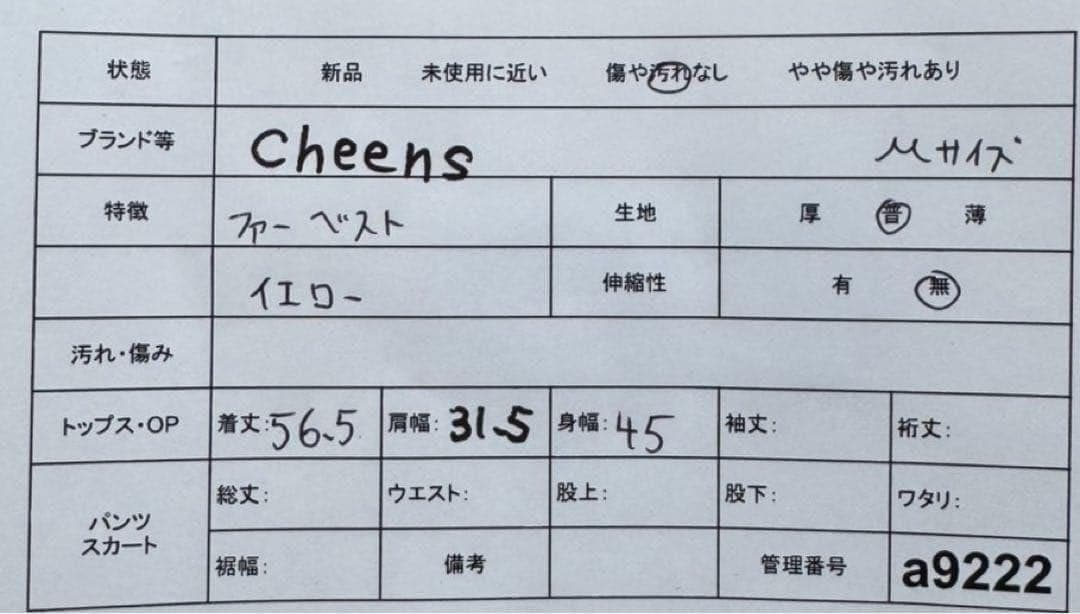 状態 新品 未使用に近い 傷や汚れなし やや傷や汚れあり
ブランド等 cheens Mサイズ
特徴 ファーベスト 生地 厚 普 薄
イエロー 伸縮性 有 無
汚れ・傷み
トップス・OP 着丈:56.5 肩幅:31.5 身幅:45 袖丈: 裄丈:
パンツ スカート 総丈: ウエスト: 股上: 股下: ワタリ:
裾幅: 備考 管理番号 a9222